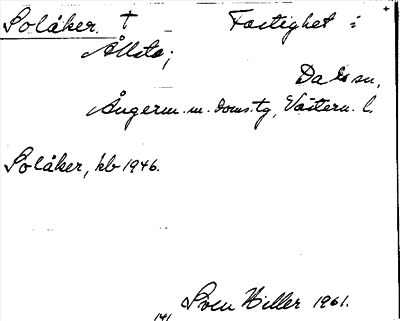 Solåker. † Fastighet i
Ållsta;
Dals sn,
Ångerm. m. doms.tg, Västern. l.
Solåker, kb 1946.
Sven Hiller 1961.
141